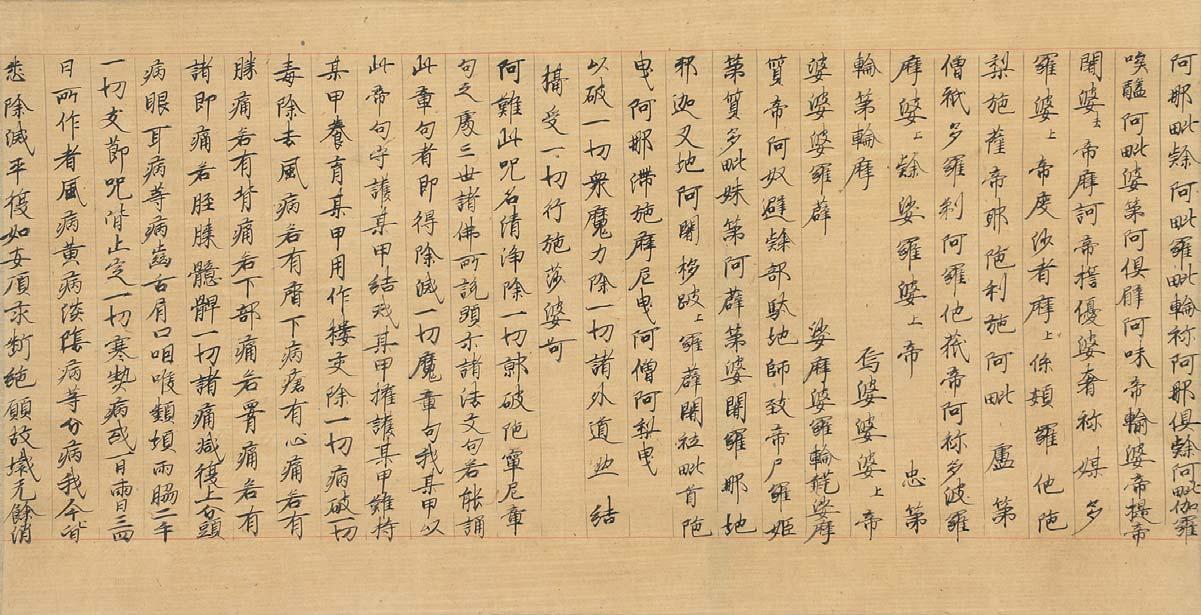 阿那毗賒阿毗羅毗輪称阿那俱賒阿毗伽羅
唉醯阿毗婆第阿俱臂阿味帝輪婆帝提帝
闍婆去帝摩訶帝楞優婆奢祢媒多
羅婆上帝度沙者摩上係頞羅他陁
梨施薩帝耶陁利施阿毗 盧第
僧祇多羅剎阿羅他莀帝阿祢多波羅
摩婆上賒娑羅婆上帝 忠第
輪第輪摩 烏婆婆婆上帝
婆婆婆婆羅薜 娑摩婆羅輪娑摩
質帝阿奴賒部馱地師致帝尸羅姬
第質多毗姝第阿薜第婆闍羅那地
那迦叉地阿闍移跛上羅薜闍祉毗首陁
曳阿那滯施摩尼曳阿僧阿梨曳
以破一切衆魔力除一切諸外道 結
攝受一切行施莎婆訶
阿難此咒名清淨除一切隷破陁寧尼章
句之處三世諸佛所説顯示諸法文句若能誦
此章句者即得除滅一切魔章句我某甲以
此帝句守護某甲結戒某甲擁護某甲難持
某甲養育某甲用作樓支除一切病破一切
毒除去風病若有脣下病瘡有心痛若有
膝痛若有背痛若下部痛若胷痛若有
諸節痛若脛膝髖髀一切諸痛減復上右頭
病眼耳病等病齒舌脣口咽喉頰項兩脇二手
一切支節咒皆止定一切寒熱病或一日二日三四
日所作者風病黃病淡陰病等分病我今皆
悉除滅平復如妄須永断絶願故壊无餘消